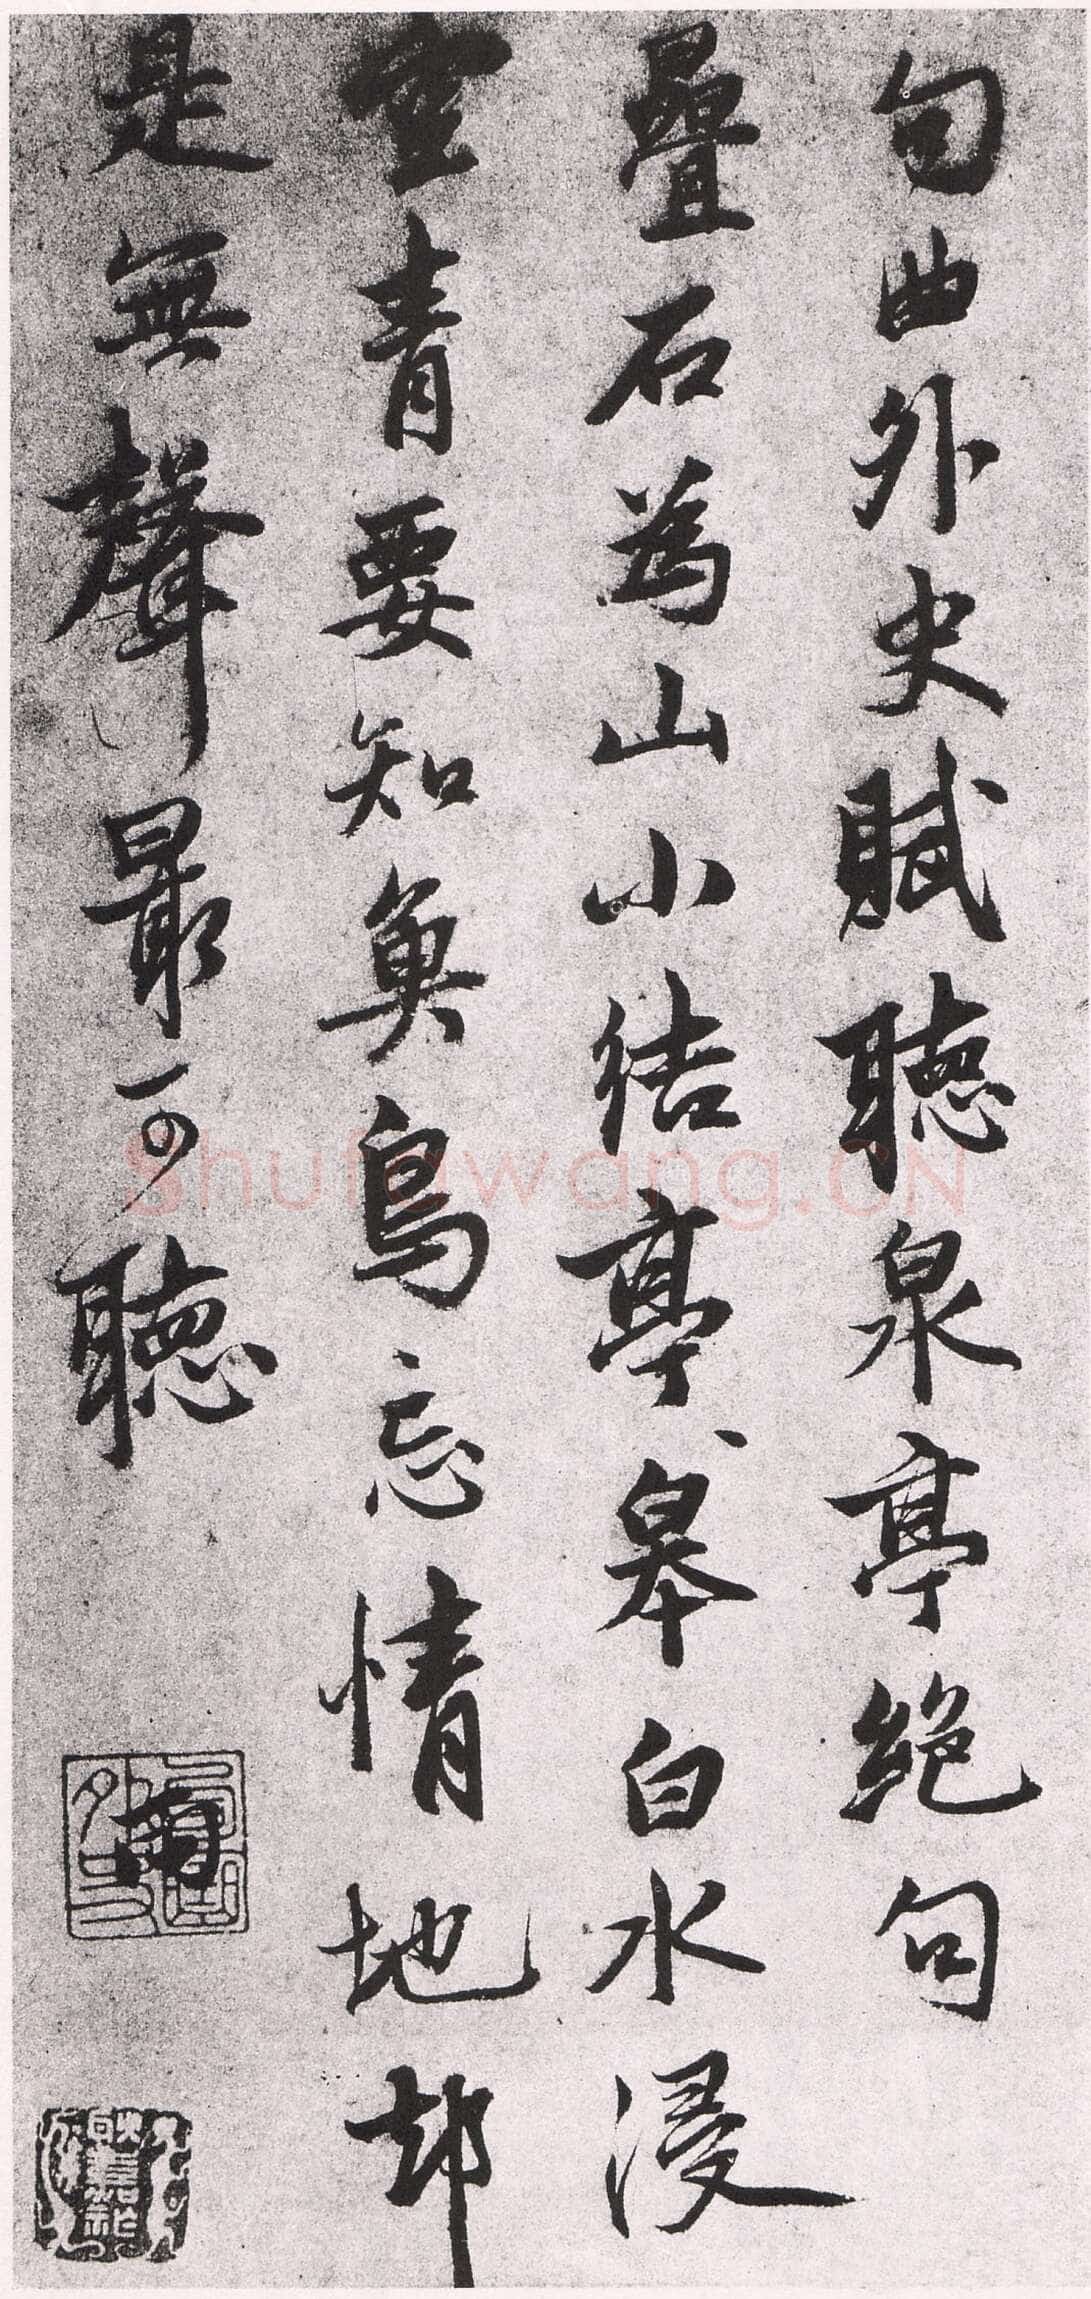 句曲外史賦聽泉亭絕句
疊石為山小結亭々皋白水浸
空青要知魚鳥忘情地却
是無聲最可聽
雨
句曲外史
Shufawang.CN